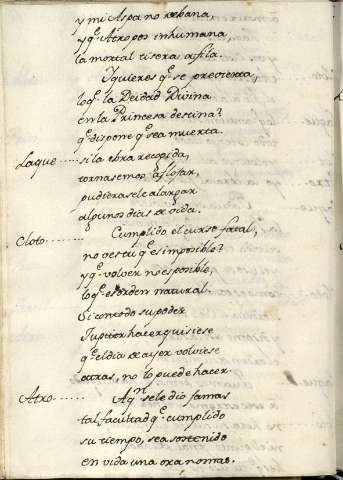 y mi Aspa no rebana,
y q.e Atropos inhumana,
la mortal tisera afila.
Y quieres q.e se previerta,
loq.e la Deidad Divina
en la Princesa destina?
q.e dispone q.e sea muerta.
Laque...... si la obra recogida,
tornasemos à aflojar,
pudierasele alargar
algunos dias de vida.
Cloto........ Cumplido el curso fatal,
no ves tu q.e es imposible?
y q.e volver no es posible,
loq.e es orden natural.
Si con todo su poder
Jupiter hacer quisiese
q.e el dia de ayer volviese
atras, no lo puede hacer.
Atro....... A q.n se le dio jamas
tal facultad q.e cumplido
su tiempo, sea sostenido
en vida una ora no mas.